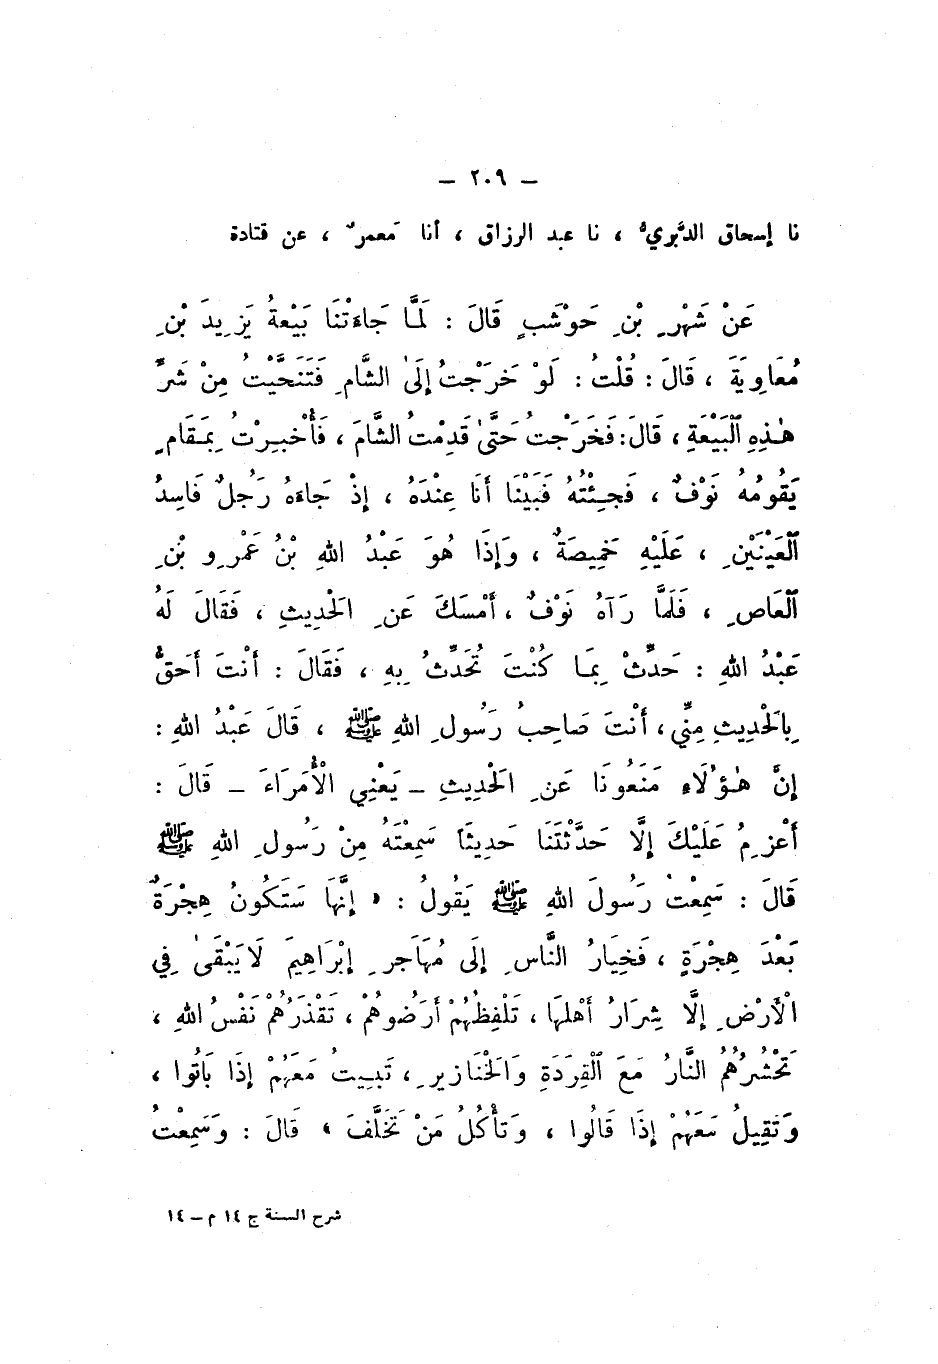 – ٢٠٩ –
نا إسحاق الدَّبري ، نا عبد الرزاق ، أنا مَعمرٌ ، عن قتادة
عَنْ شَهْرِ بْنِ حَوْشَبٍ قَالَ : لَمَّا جَاءَتْنَا بَيْعَةُ يَزِيدَ بْنِ
مُعَاوِيَةَ ، قَالَ : قُلْتُ : لَوْ خَرَجْتُ إِلَىٰ الشَّامِ فَتَنَحَّيْتُ مِنْ شَرِّ
هٰذِهِ ٱلْبَيْعَةِ ، قَالَ : فَخَرَجْتُ حَتَّىٰ قَدِمْتُ الشَّامَ ، فَأُخْبِرْتُ بِمَقَامٍ
يَقُومُهُ نَوْفٌ ، فَجِئْتُهُ فَبَيْنَا أَنَا عِنْدَهُ ، إِذْ جَاءَهُ رَجُلٌ فَاسِدُ
ٱلْعَيْنَيْنِ ، عَلَيْهِ خَمِيصَةٌ ، وَإِذَا هُوَ عَبْدُ اللهِ بْنُ عَمْرِو بْنِ
ٱلْعَاصِ ، فَلَمَّا رَآهُ نَوْفٌ ، أَمْسَكَ عَنِ الْحَدِيثِ ، فَقَالَ لَهُ
عَبْدُ اللهِ : حَدِّثْ بِمَا كُنْتَ تُحَدِّثُ بِهِ ، فَقَالَ : أَنْتَ أَحَقُّ
بِالْحَدِيثِ مِنِّي ، أَنْتَ صَاحِبُ رَسُولِ اللهِ ﷺ ، قَالَ عَبْدُ اللهِ :
إِنَّ هٰؤُلَاءِ مَنَعُونَا عَنِ الْحَدِيثِ – يَعْنِي الْأُمَرَاءَ – قَالَ :
أَعْزِمُ عَلَيْكَ إِلَّا حَدَّثْتَنَا حَدِيثًا سَمِعْتَهُ مِنْ رَسُولِ اللهِ ﷺ
قَالَ : سَمِعْتُ رَسُولَ اللهِ ﷺ يَقُولُ : « إِنَّهَا سَتَكُونُ هِجْرَةٌ
بَعْدَ هِجْرَةٍ ، فَخِيَارُ النَّاسِ إِلَى مُهَاجَرِ إِبْرَاهِيمَ لَا يَبْقَىٰ فِي
الْأَرْضِ إِلَّا شِرَارُ أَهْلِهَا ، تَلْفِظُهُمْ أَرَضُوهُمْ ، تَقْذَرُهُمْ نَفْسُ اللهِ ،
تَحْشُرُهُمُ النَّارُ مَعَ ٱلْقِرَدَةِ وَالْخَنَازِيرِ ، تَبِيتُ مَعَهُمْ إِذَا بَاتُوا ،
وَتَقِيلُ مَعَهُمْ إِذَا قَالُوا ، وَتَأْكُلُ مَنْ تَخَلَّفَ » قَالَ : وَسَمِعْتُ
شرح السنة ج ١٤ م – ١٤